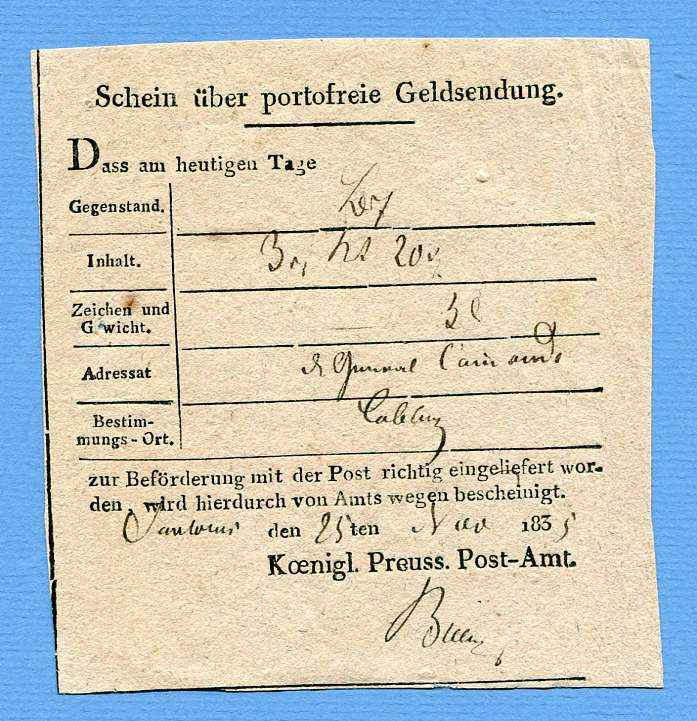 Schein über portofreie Geldsendung.
Dass am heutigen Tage
Gegenstand.
Inhalt. 200
Zeichen und
Gewicht.
Adressat General Com̅ando
Bestim-
mungs-Ort. Coblenz
zur Beförderung mit der Post richtig eingeliefert wor-
den, wird hierdurch von Amts wegen bescheinigt.
den 25ten Nov 1835
Kœnigl. Preuss. Post-Amt.